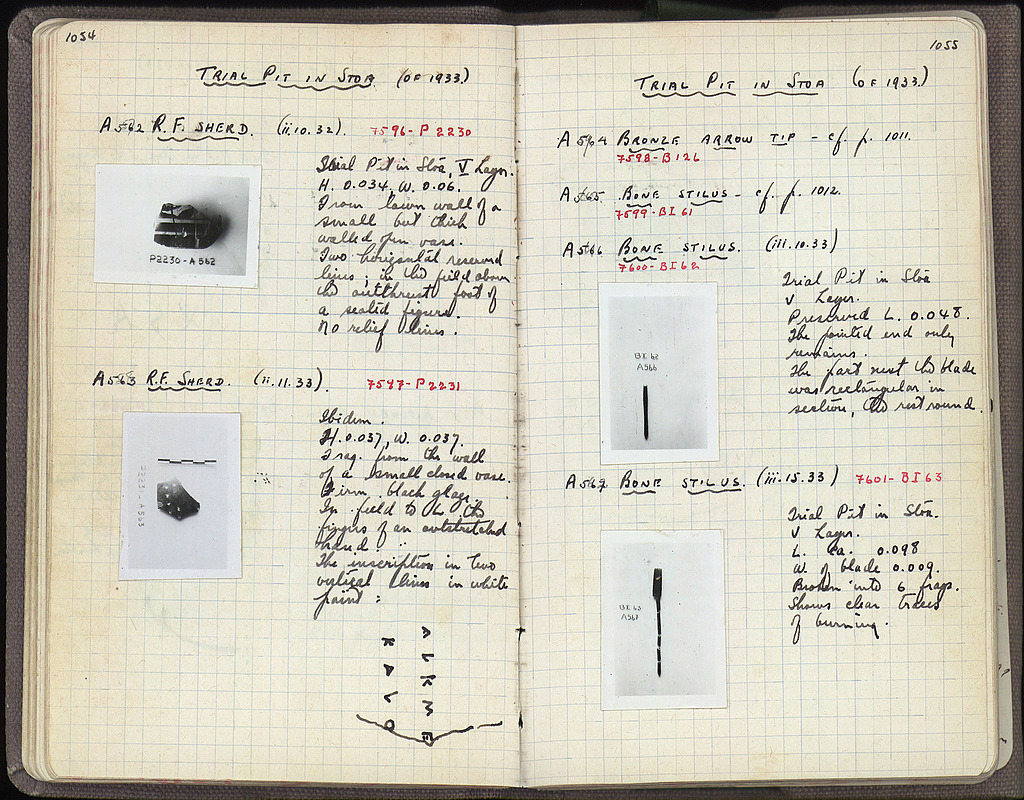 1054
TRIAL PIT IN STOA (OF 1933)
A562 R.F. SHERD. (ii.10.32). 7596-P 2230
Trial Pit in Stoa, V Layer.
H. 0.034, W. 0.06.
From lower wall of a
small but thick
walled open vase.
Two horizontal reserved
lines; in the field above
the outthrust foot of
a seated figure.
No relief lines.
P2230-A562
A563 R.F. SHERD. (ii.11.33). 7597-P2231
Ibidem.
H. 0.037, W. 0.037.
Frag. from the wall
of a small closed vase.
Firm black glaze.
In field to the
fingers of an outstretched
hand.
The inscription in two
vertical lines in white
paint:
A563
ALKME
KALO
1055
TRIAL PIT IN STOA (OF 1933)
A564 BRONZE ARROW TIP - cf. p. 1011.
7598-B126
A565 BONE STILUS - cf. p. 1012.
7599-BI61
A566 BONE STILUS. (iii.10.33)
7600-BI62
Trial Pit in Stoa
V Layer.
Preserved L. 0.048.
The pointed end only
remains.
The part next the blade
was rectangular in
section, the rest round.
BI 62
A566
A567 BONE STILUS. (iii.15.33) 7601-BI63
Trial Pit in Stoa.
V Layer.
L. ca. 0.098
W. of blade 0.009.
Broken into 6 frags.
Shows clear traces
of burning.
BI 63
A567